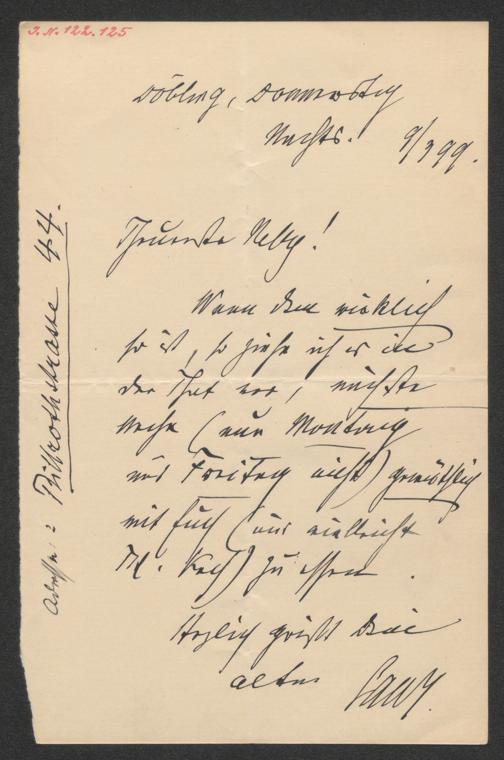 J.N. 122.125
Döbling, Donnerstag
Nachts. 9/3 99.
Theuerste Nelly!
Wenn dem wirklich
so ist, so ziehe ich es in
der That vor, nächste
Woche (nur Montag
und Freitag nicht) gemüthlich
mit Euch (und vielleicht
Fr. ) zu essen.
Herzlich grüßt Dein
alter
Adresse: Billrothstrasse 44.